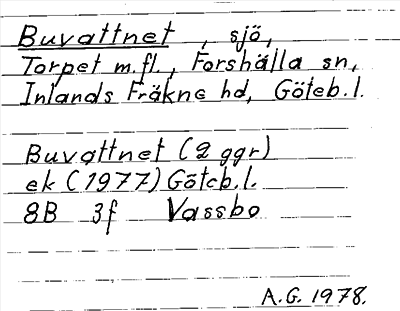 Buvattnet, sjö,
Torpet m.fl., Forshälla sn,
Inlands Fräkne hd, Göteb.l.
Buvattnet (2 ggr)
ek (1977) Göteb.l.
8B 3f Vassbo
A.G. 1978.